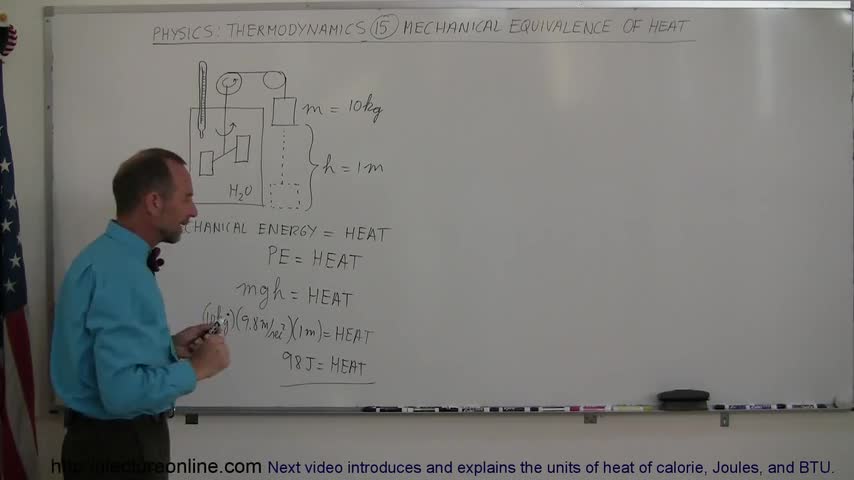 PHYSICS: THERMODYNAMICS 15 MECHANICAL EQUIVALENCE OF HEAT
m = 10kg
h = 1m
H₂O
CHANICAL ENERGY = HEAT
PE = HEAT
mgh = HEAT
(10kg)(9.8m/sec²)(1m) = HEAT
98J = HEAT
Next video introduces and explains the units of heat of calorie, Joules, and BTU.